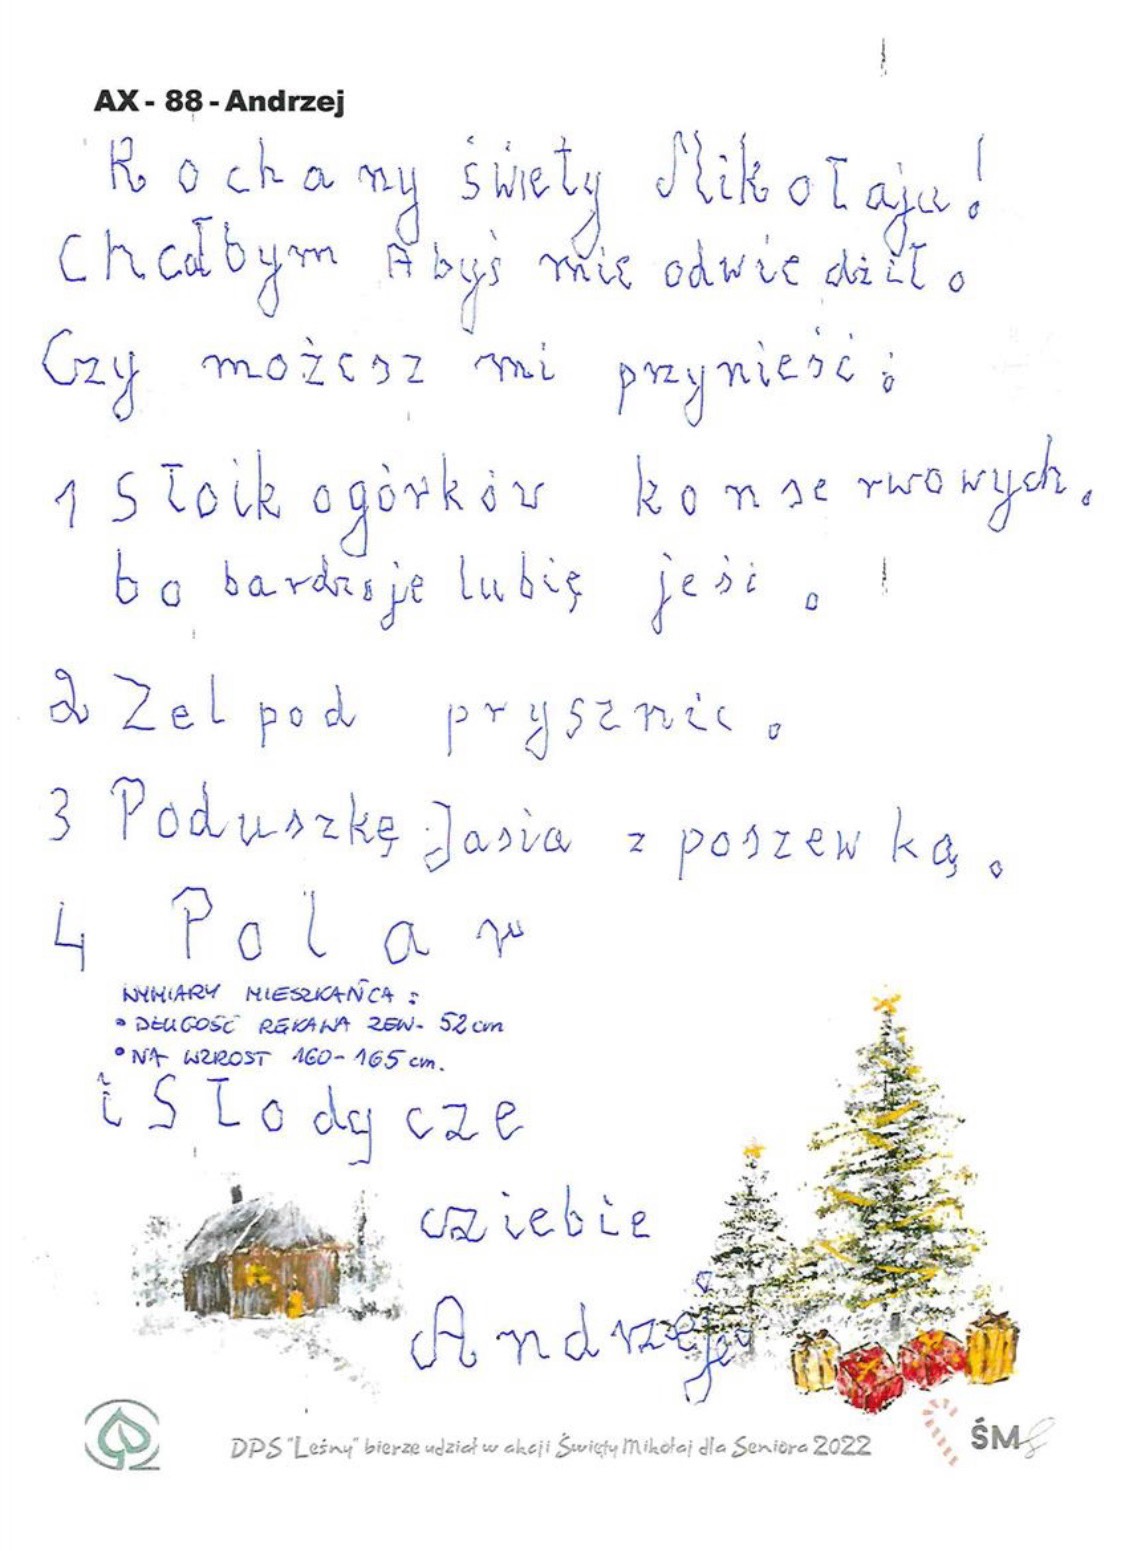 AX - 88 - Andrzej
Kochany święty Mikołaju!
Chcałbym Abyś mie odwiedźił.
Czy możesz mi przynieść:
1 Słoik ogórków konserwowych.
bo bardzo je lubię jeść.
2 Zel pod prysznic.
3 Poduszkę Jasia z poszewką.
4 Polar
WYMIARY MIESZKAŃCA:
• DŁUGOŚĆ RĘKAWA ZEW- 52 cm
• NA WZROST 160-165 cm.
i Słodycze
Andrzej
DPS "Leśny" bierze udział w akcji Święty Mikołaj dla Seniora 2022
ŚM